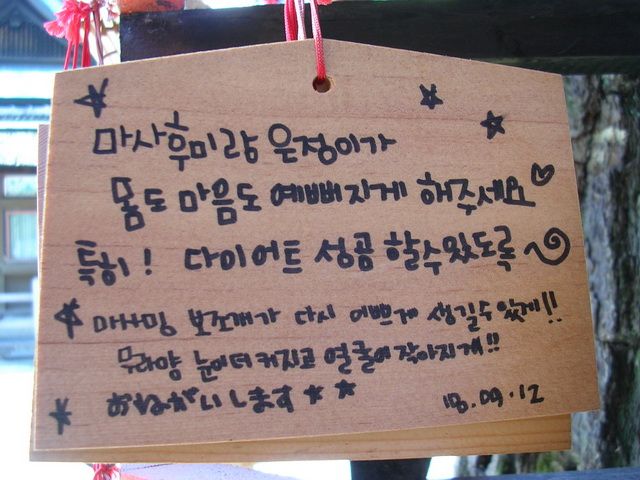 마사후미랑 은정이가
몸도 마음도 예뻐지게 해주세요♡
특히! 다이어트 성공 할수있도록~
마사밍 보조개가 다시 이쁘게 생길수 있게!!
무라양 눈이더 커지고 얼굴이 작아지게!!
おねがいします★★
18.09.12